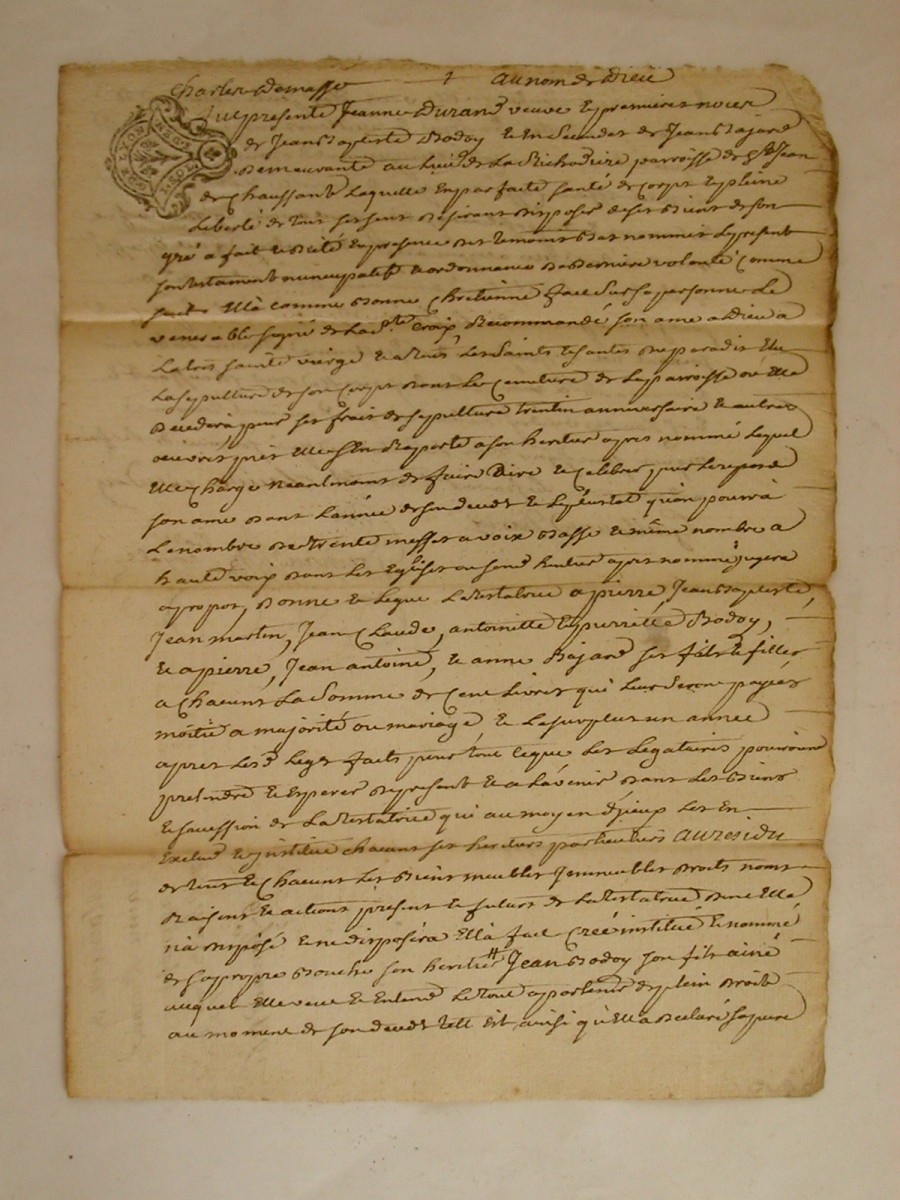 Charles Demasse † au nom de Dieu
fut presente Jeanne Durand veuve en premieres noces
de Jean Baptiste Bodoy et en Secondes de Jean Bajard
Demeurante au Lieu de La Bichodiere parroisse de St Jean
de Chaussant Laquelle En parfaite santé de Corps en pleine
Liberté de tous ses sens Desirant disposer de ses Biens de son
gré a fait et dicté En presence des temoins Bas nommés Le present
son testament nuncupatif et ordonnance de Derniere volonté Comme
suit Ella comme Bonne Chretienne fait Sur sa personne Le
venerable signe de La Ste Croix, Recommandé son ame a Dieu a
La tres sainte vierge et a tous Les Saints et saintes du paradis Elu
La sepulture de son Corps dans Le Cemetiere de La parroisse ou Elle
Decedera pour ses frais de sepulture trentin anniversaire et autres
oeuvres pies Elle s'En Raporte a son heritier apres nommé Lequel
Elle Charge Neantmoins de faire Dire et Celebrer pour Le repos de
son ame dans L'année de son deces et Le plustot qu'on pourra
Le nombre de trente messes a voix Basse et même nombre a
haute voix dans Les Eglises ou sond heritier apres nommé jugera
a propos, Donne et Legue La testatrice a pierre, Jean Baptiste,
Jean martin, Jean Claude, antoinette et pierrette Bodoy,
et a pierre, Jean antoine, et anne Bajard ses fils et filles
a Chacuns La Somme de Cent Livres qui Leur seront payées
moitié a majorité ou mariage et Le surplus un année
apres Lesd Legs faits pour tout ce que Les Legataires pourroient
pretendre et Esperer de present et a L'avenir dans Les Biens
et sucession de La testatrice qui au moyen d'jceux Les En
Exclud et jnstitue chacuns ses heritiers particuliers au residu
de tous et Chacuns Les Biens meubles Jmmeubles droits noms
Raisons et actions presents et futurs de La testatrice dont Elle
n'a disposé et ne disposera Ella fait Créé institué et nommé
de sa propre Bouche son heritier Jean Bodoy son fils ainé
auquel Elle veut et Entend Le tout apartenir de plein droit
au moment de son deces tell est ainsi qu'Ella Declaré sa pure